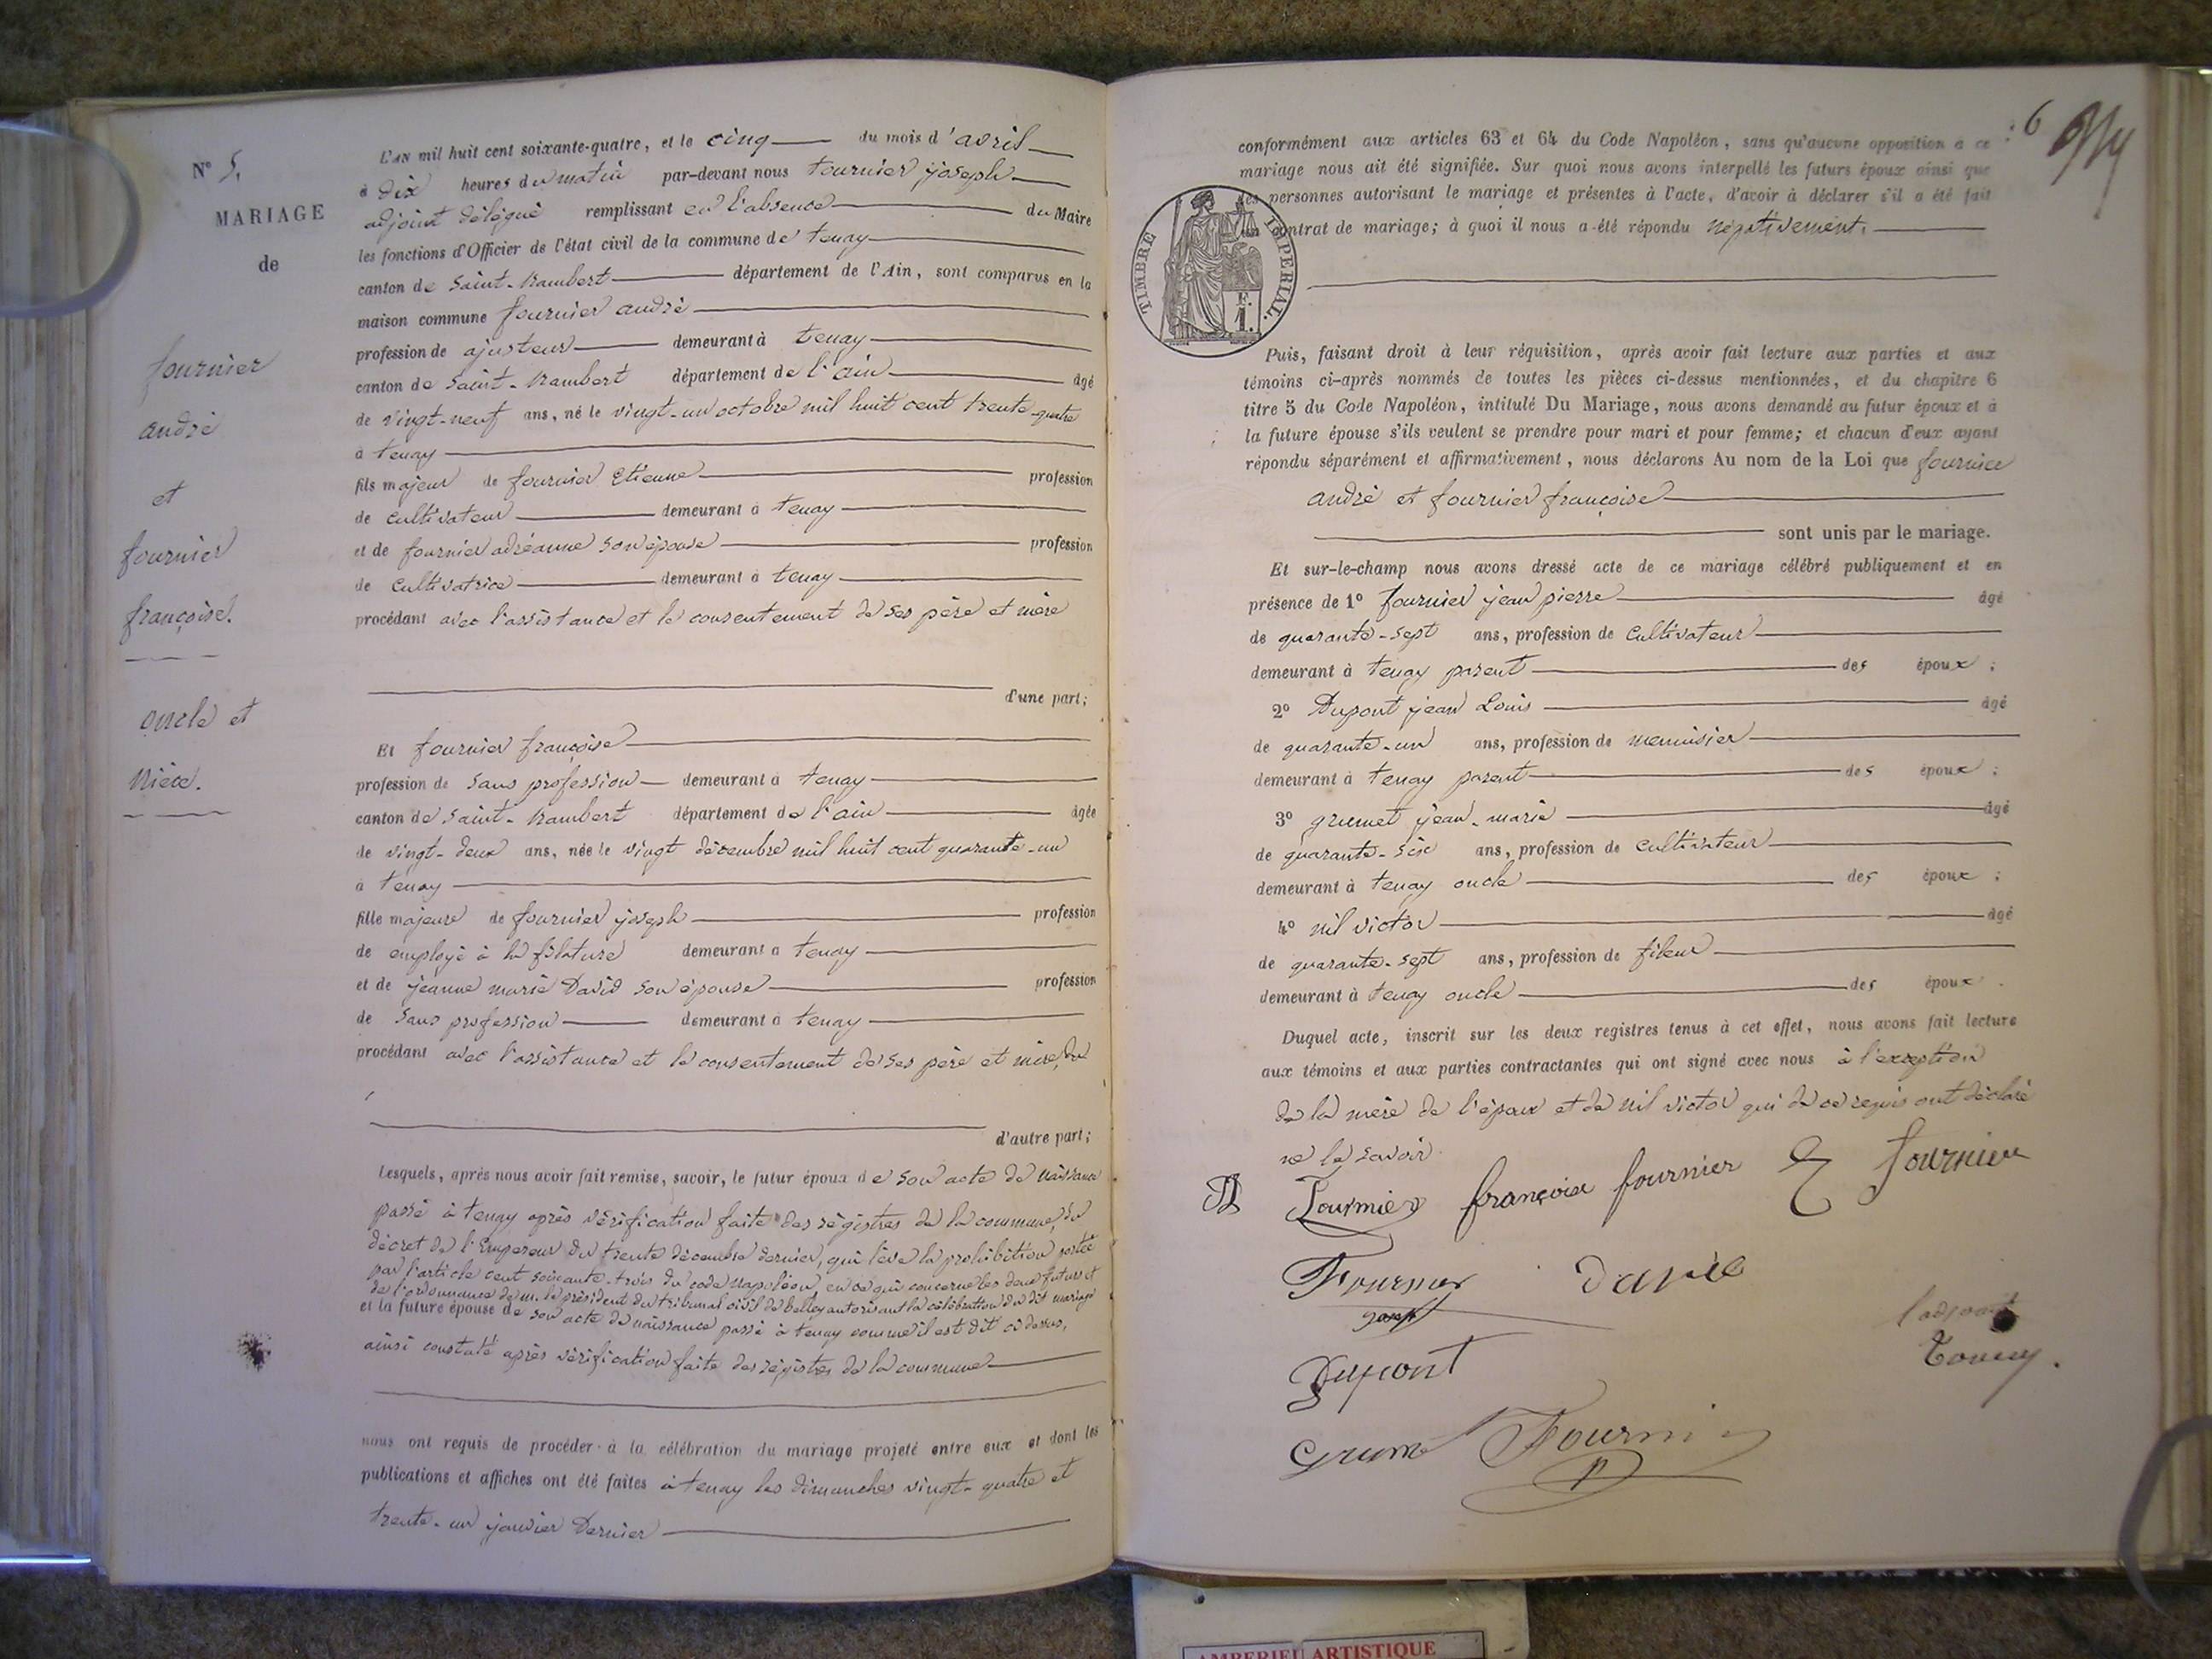 N° 5.
MARIAGE
de
fournier
andré
et
fournier
françoise.
oncle et
nièce.
L'AN mil huit cent soixante-quatre, et le cinq du mois d'avril
à dix heures du matin par-devant nous tournier joseph
adjoint délégué remplissant en l'absence du Maire
les fonctions d'Officier de l'état civil de la commune de tenay
canton de Saint-Rambert département de l'Ain, sont comparus en la
maison commune fournier andré
profession de ajusteur demeurant à tenay
canton de Saint-Rambert département de l'ain âgé
de vingt-neuf ans, né le vingt-un octobre mil huit cent trente-quatre
à tenay
fils majeur de fournier Etienne profession
de cultivateur demeurant à tenay
et de fournier adréanne son épouse profession
de cultivatrice demeurant à tenay
procédant avec l'assistance et le consentement de ses père et mère
d'une part;
Et fournier françoise
profession de sans profession demeurant à tenay
canton de Saint-Rambert département de l'ain âgée
de vingt-deux ans, née le vingt décembre mil huit cent quarante-un
à tenay
fille majeure de fournier joseph profession
de employé à la filature demeurant à tenay
et de jeanne marie David son épouse profession
de sans profession demeurant à tenay
procédant avec l'assistance et le consentement de ses père et mère
d'autre part;
Lesquels, après nous avoir fait remise, savoir, le futur époux de son acte de naissance
passé à tenay après vérification faite des régistres de la commune, du
décret de l'Empereur du trente décembre dernier, qui lève la prohibition portée
par l'article cent soixante-trois du code napoléon, en ce qui concerne les deux futurs et
de l'ordonnance de m. le président du tribunal civil de belley autorisant la célébration du dit mariage
et la future épouse de son acte de naissance passé à tenay comme il est dit ci dessus,
ainsi constaté après vérification faite des régistres de la commune
nous ont requis de procéder à la célébration du mariage projeté entre eux et dont les
publications et affiches ont été faites à tenay les dimanches vingt-quatre et
trente-un janvier Dernier
6
conformément aux articles 63 et 64 du Code Napoléon, sans qu'aucune opposition à ce
mariage nous ait été signifiée. Sur quoi nous avons interpellé les futurs époux ainsi que
les personnes autorisant le mariage et présentes à l'acte, d'avoir à déclarer s'il a été fait
un contrat de mariage; à quoi il nous a été répondu négativement.
TIMBRE IMPERIAL.
F.
1.
Puis, faisant droit à leur réquisition, après avoir fait lecture aux parties et aux
témoins ci-après nommés de toutes les pièces ci-dessus mentionnées, et du chapitre 6
titre 5 du Code Napoléon, intitulé Du Mariage, nous avons demandé au futur époux et à
la future épouse s'ils veulent se prendre pour mari et pour femme; et chacun d'eux ayant
répondu séparément et affirmativement, nous déclarons Au nom de la Loi que fournier
andré et fournier françoise
sont unis par le mariage.
Et sur-le-champ nous avons dressé acte de ce mariage célébré publiquement et en
présence de 1° fournier jean pierre âgé
de quarante-sept ans, profession de cultivateur
demeurant à tenay parent des époux;
2° Dupont jean Louis âgé
de quarante-un ans, profession de menuisier
demeurant à tenay parent des époux;
3° grumet jean-marie âgé
de quarante-six ans, profession de cultivateur
demeurant à tenay oncle des époux;
4° nil victor âgé
de quarante-sept ans, profession de fileur
demeurant à tenay oncle des époux.
Duquel acte, inscrit sur les deux registres tenus à cet effet, nous avons fait lecture
aux témoins et aux parties contractantes qui ont signé avec nous à l'exception
de la mère de l'époux et de nil victor qui de ce requis ont déclaré
ne le savoir.
Fournier françoise fournier E fournier
Fournier David
joseph
l'adjoint
Dupont
Grumet Fournier
AMBERIEU ARTISTIQUE